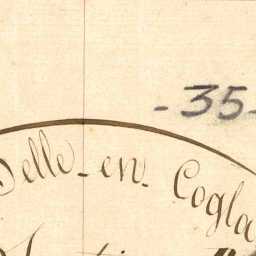 - 35 -
Selle-en-Cogla